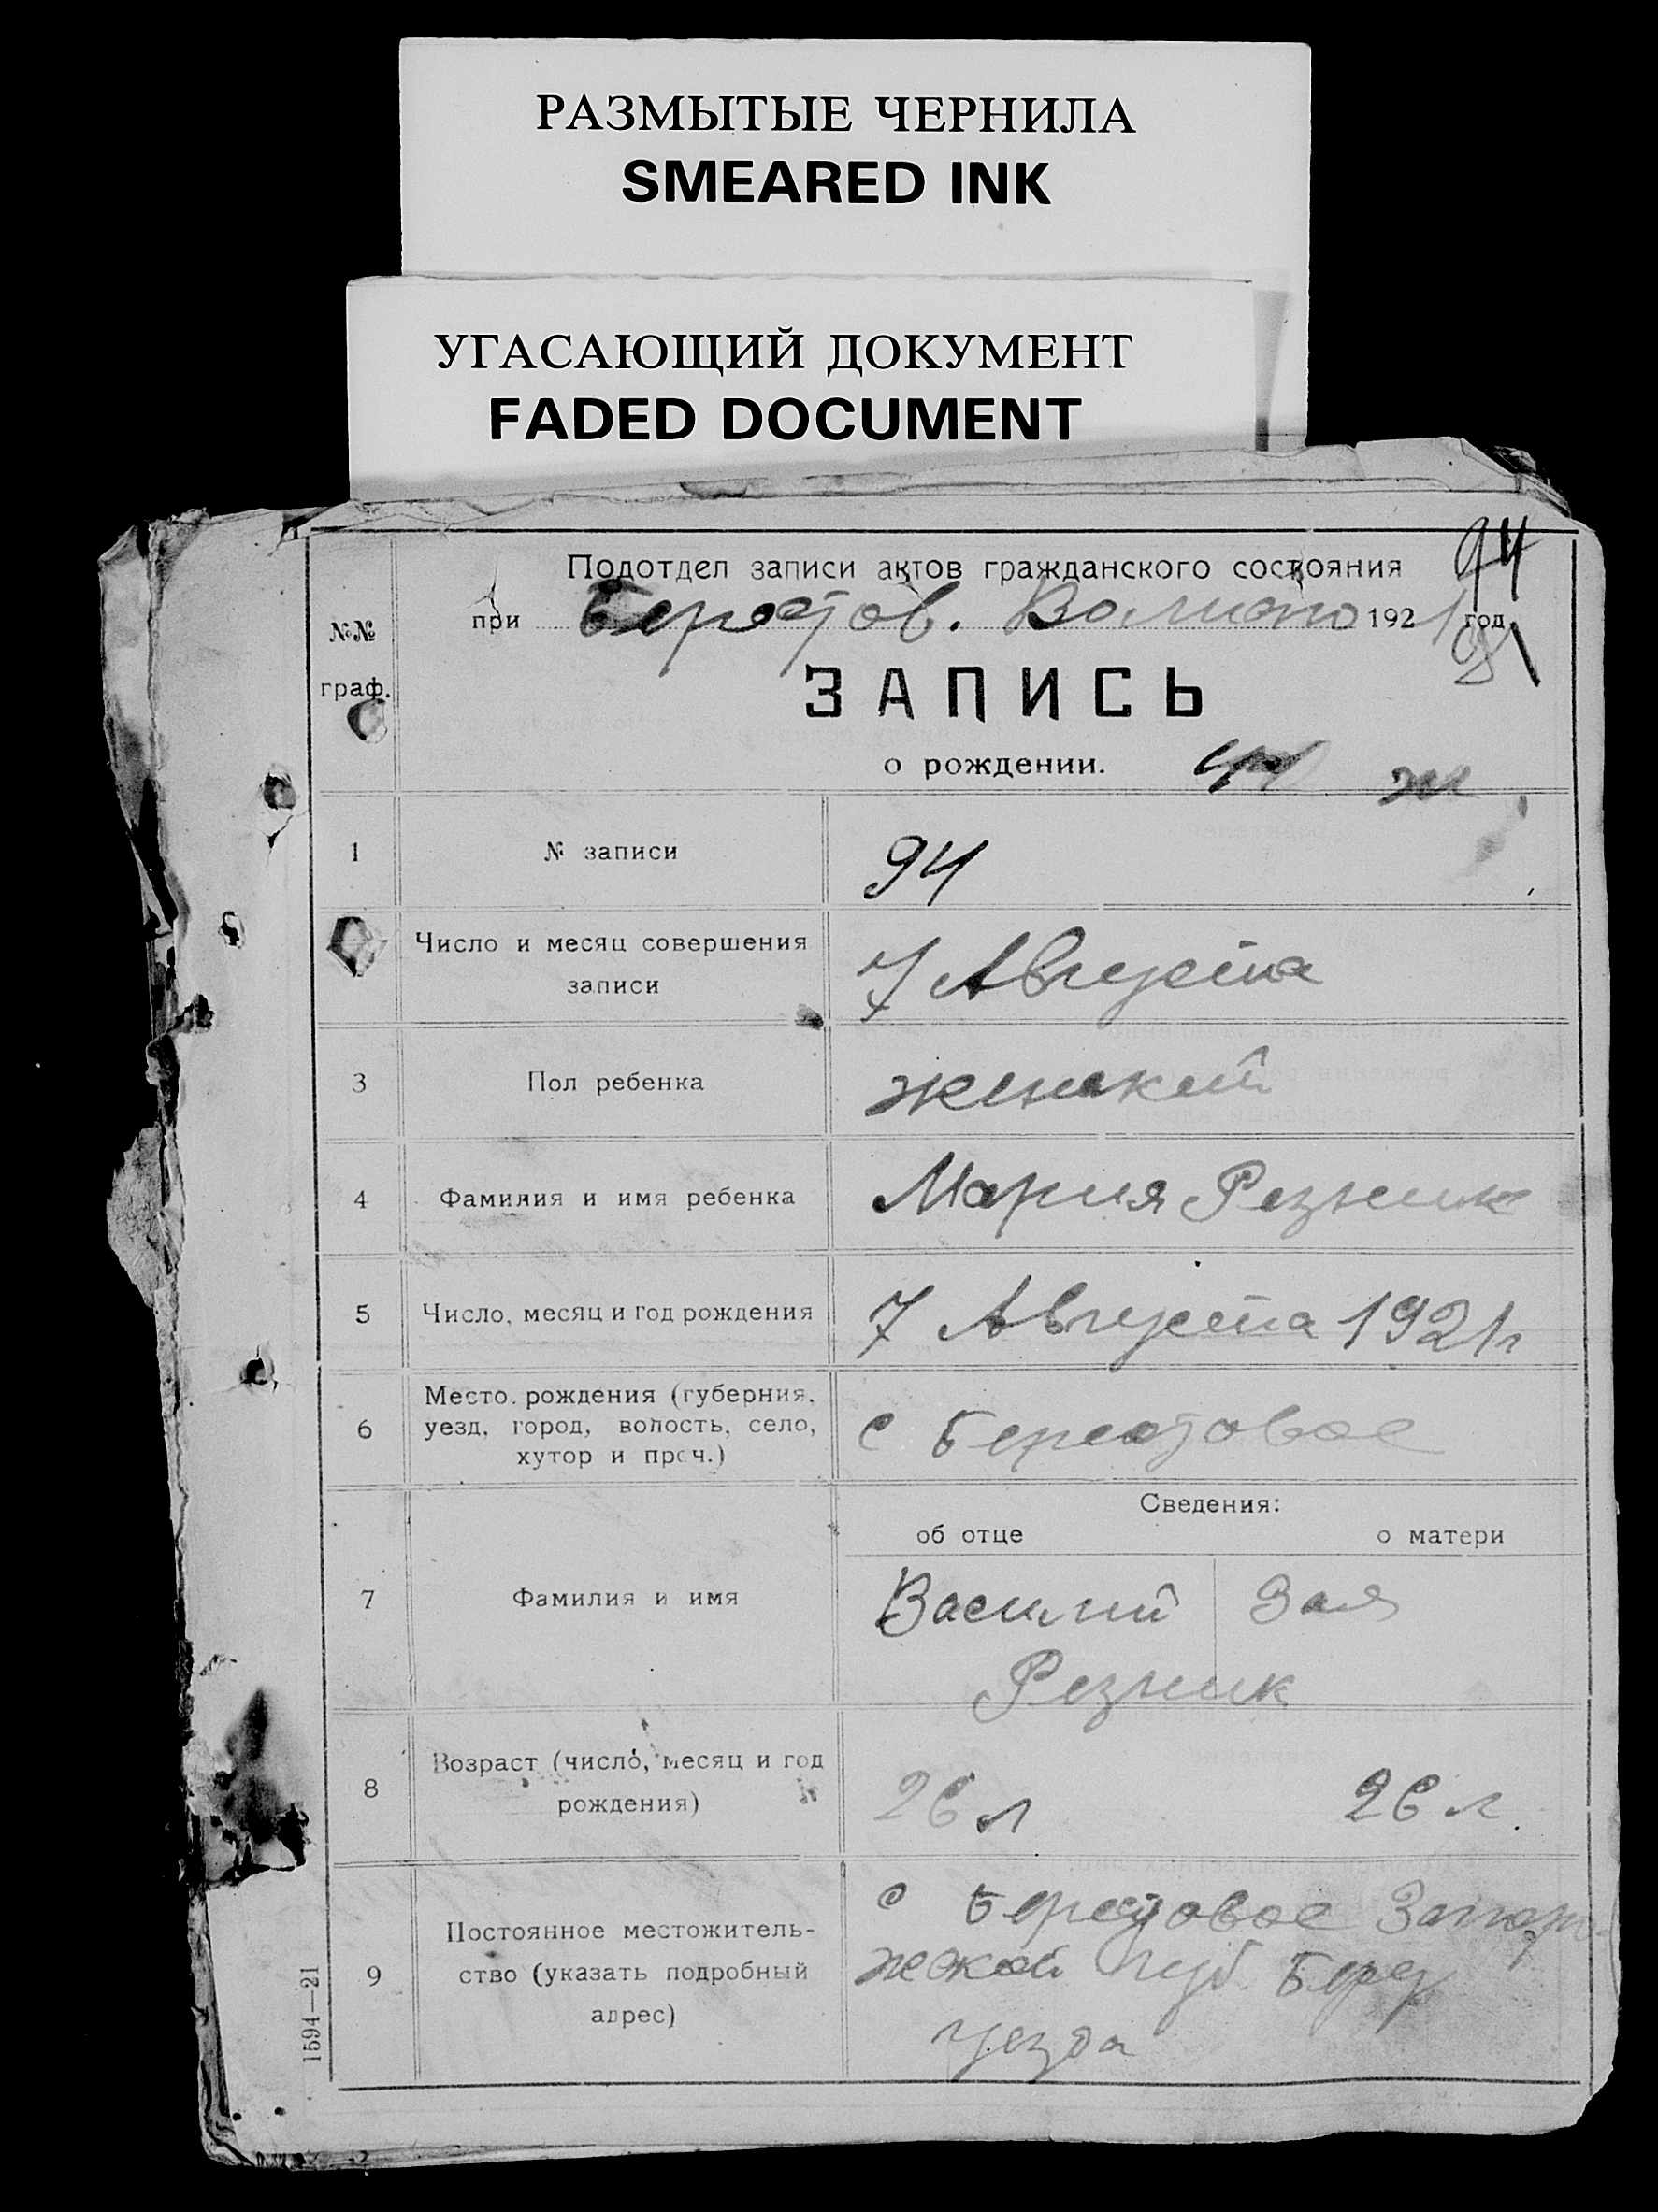 РАЗМЫТЫЕ ЧЕРНИЛА
SMEARED INK
УГАСАЮЩИЙ ДОКУМЕНТ
FADED DOCUMENT
94
Подотдел записи актов гражданского состояния
№№ граф.
при Берестов. 1921 год
ЗАПИСЬ
о рождении. ж
1 № записи 94
Число и месяц совершения записи 7 Августа
3 Пол ребенка женский
4 Фамилия и имя ребенка Мария Резник
5 Число, месяц и год рождения 7 Августа 1921 г
6 Место рождения (губерния, уезд, город, волость, село, хутор и проч.) с Берестовое
Сведения:
об отце о матери
7 Фамилия и имя Василий
Резник
8 Возраст (число, месяц и год рождения) 26 л 26 л.
9 Постоянное местожитель-
ство (указать подробный
адрес)
с Берестовое Запоро-
жской губ. Берд
уезда
1594—21